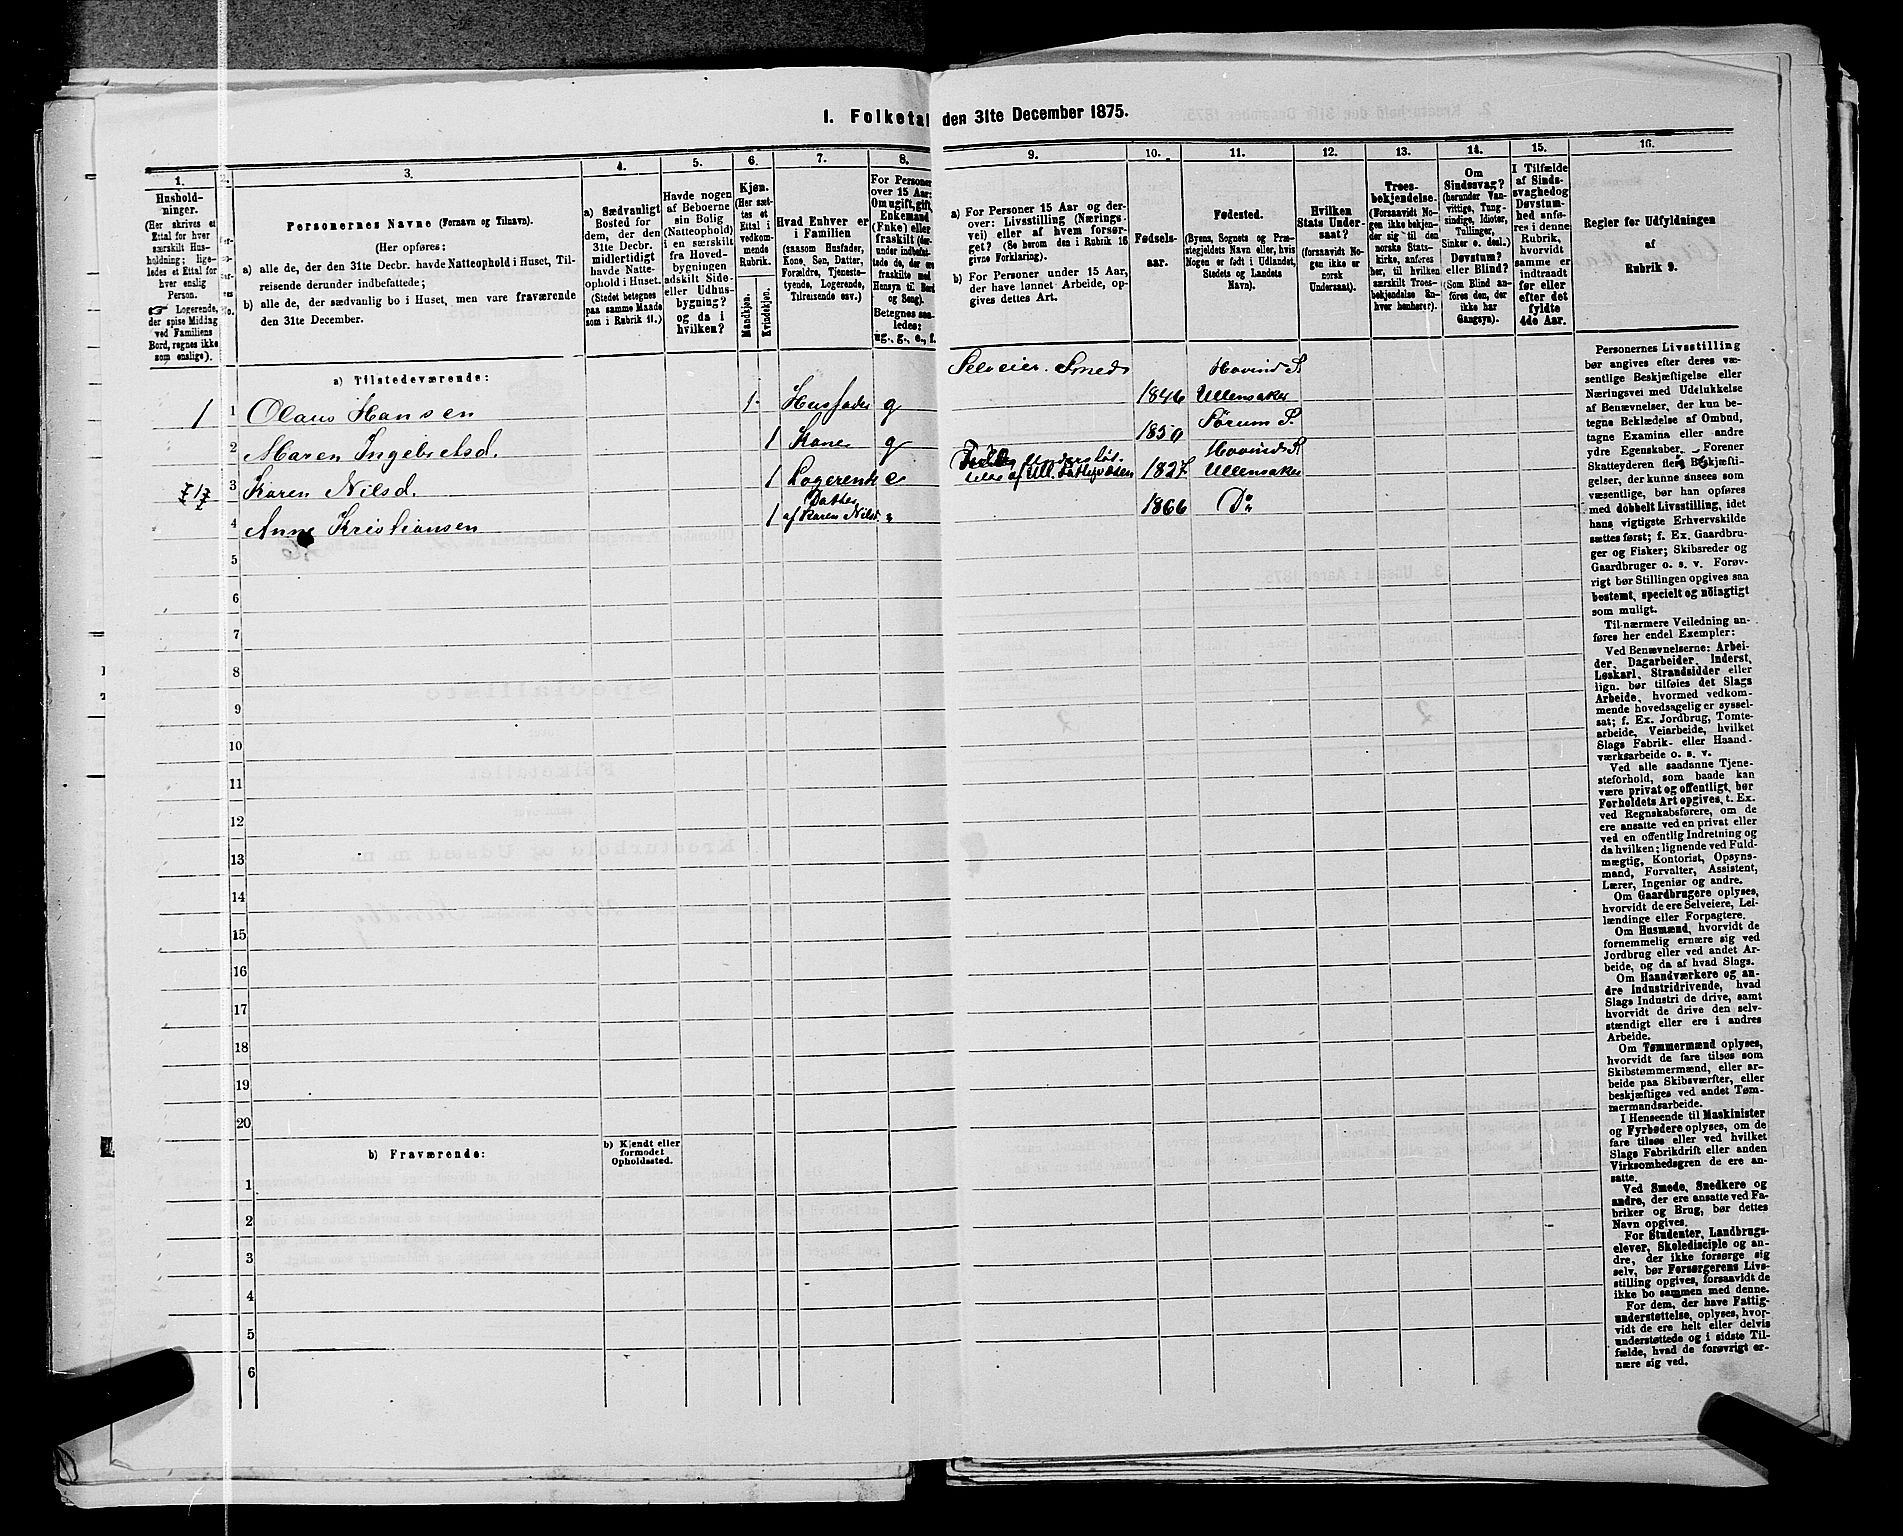 1. Folketal den 31te December 1875.
1.
2.
3.
4.
5.
6.
7.
8.
9.
10.
11.
12.
13.
14.
15.
16.
Hushold-
ninger.
(Her skrives et
Ettal for hver
særskilt Hus-
holdning; lige-
ledes et Ettal for
hver enslig
Person.
☛ Logerende,
der spise Middag
ved Familiens
Bord, regnes ikke
som enslige).
No.
Personernes Navne (Fornavn og Tilnavn).
(Her opføres:
a) alle de, der den 31te Decbr. havde Natteophold i Huset, Til-
reisende derunder indbefattede;
b) alle de, der sædvanlig bo i Huset, men vare fraværende
den 31te December.
a) Sædvanligt
Bosted for
dem, der den
31te Decbr.
midlertidigt
havde Natte-
ophold i Huset.
(Stedet betegnes
paa samme Maade
som i Rubrik 11.)
Havde nogen
af Beboerne
sin Bolig
(Natteophold)
i en særskilt
fra Hoved-
bygningen
adskilt Side-
eller Udhus-
bygning?
og da i
hvilken?
Kjøn.
(Her sæt-
tes et
Ettal i
vedkom-
mende
Rubrik.
Mandkjøn.
Kvindekjøn.
Hvad Enhver er
i Familien
(saasom Husfader,
Kone, Søn, Datter,
Forældre, Tjeneste-
tyende, Logerende,
Tilreisende osv.)
For Personer
over 15 Aar:
Om ugift, gift,
Enkemand
(Enke) eller
fraskilt (der-
under indbefat-
tede de, der ere
fraskilte med
Hensyn til Bord
og Seng).
Betegnes saa-
ledes:
ug., g., e., f.
a) For Personer 15 Aar og der-
over: Livsstilling (Nærings-
vei) eller af hvem forsør-
get? (Se herom den i Rubrik 16
givne Forklaring).
b) For Personer under 15 Aar,
der have lønnet Arbeide, op-
gives dettes Art.
Fødsels-
aar.
Fødested.
(Byens, Sognets og Præ-
stegjeldets Navn eller, hvis
Nogen er født i Udlandet,
Stedets og Landets
Navn).
Hvilken
Stats Under-
saat?
(forsaavidt No-
gen ikke er
norsk
Undersaat).
Troes-
bekjendelse.
(Forsaavidt No-
gen ikke bekjen-
der sig til den
norske Stats-
kirke, anføres
her, til hvilken
særskilt Troes-
bekjendelse En-
hver henhører).
Om
Sindssvag?
(herunder Van-
vittige, Tung-
sindige, Idioter,
Tullinger,
Sinker o. desl.).
Døvstum?
eller Blind?
(Som Blind an-
føres den, der
ikke har
Gangsyn).
I Tilfælde
af Sinds-
svaghed og
Døvstum-
hed anfø-
res i denne
Rubrik,
hvorvidt
samme er
indtraadt
før eller
efter det
fyldte
4de Aar.
Regler for Udfyldningen
af
Rubrik 9.
a) Tilstedeværende:
Selveier. Smed
Hovind S
1 1 Olaus Hansen 1 Husfader g 1846 Ullensaker
Sørum S.
2 Maren Ingebretsd. 1 Kone g 1850
Hovind S
3 Karen Nilsd. 1 Logerende e af Ull. Fattigvæsen 1827 Ullensaker
Datter
4 Anne Kristiansen 1 af Karen Nilsd. " 1866 Do
5
6
7
8
9
10
11
12
13
14
15
16
17
18
19
20
b) Fraværende:
b) Kjendt eller
formodet
Opholdssted.
1
2
3
4
5
6
Personernes Livsstilling
bør angives efter deres væ-
sentlige Beskjæftigelse eller
Næringsvei med Udelukkelse
af Benævnelser, der kun be-
tegne Beklædelse af Ombud,
tagne Examina eller andre
ydre Egenskaber. Forener
Skatteyderen flere Beskjæfti-
gelser, der kunne ansees som
væsentlige, bør han opføres
med dobbelt Livsstilling, idet
hans vigtigste Erhvervskilde
sættes først; f. Ex. Gaardbru-
ger og Fisker; Skibsreder og
Gaardbruger o. s. v. Forøv-
rigt bør Stillingen opgives saa
bestemt, specielt og nøiagtigt
som muligt.
Til nærmere Veiledning an-
føres her endel Exempler:
Ved Benævnelserne: Arbei-
der, Dagarbeider, Inderst,
Løskarl, Strandsidder eller
lign. bør tilføies det Slags
Arbeide, hvormed vedkom-
mende hovedsagelig er syssel-
sat; f. Ex. Jordbrug, Tomte-
arbeide, Veiarbeide, hvilket
Slags Fabrik- eller Haand-
værksarbeide o. s. v.
Ved alle saadanne Tjene-
steforhold, som baade kan
være privat og offentligt, bør
Forholdets Art opgives, t. Ex.
ved Regnskabsførere, om de
ere ansatte ved en privat eller
ved en offentlig Indretning og
da hvilken; lignende ved Fuld-
mægtig, Kontorist, Opsyns-
mand, Forvalter, Assistent,
Lærer, Ingeniør og andre.
Om Gaardbrugere oplyses,
hvorvidt de ere Selveiere, Lei-
lændinge eller Forpagtere.
Om Husmænd, hvorvidt de
fornemmelig ernære sig ved
Jordbrug eller ved andet Ar-
beide, og da af hvad Slags.
Om Haandværkere og an-
dre Industridrivende, hvad
Slags Industri de drive, samt
hvorvidt de drive den selv-
stændigt eller ere i andres
Arbeide.
Om Tømmermænd oplyses,
hvorvidt de fare tilsøs som
Skibstømmermænd, eller ar-
beide paa Skibsværfter, eller
beskjæftiges ved andet Tøm-
mermandsarbeide.
I Henseende til Maskinister
og Fyrbødere oplyses, om de
fare tilsøs eller ved hvilket
Slags Fabrikdrift eller anden
Virksomhedsgren de ere an-
satte.
Ved Smede, Snedkere og
andre, der ere ansatte ved Fa-
briker og Brug, bør dettes
Navn opgives.
For Studenter, Landbrugs-
elever, Skoledisciple og an-
dre, der ikke forsørge sig
selv, bør Forsørgerens Livs-
stilling opgives, forsaavidt de
ikke bo sammen med denne.
For dem, der have Fattig-
understøttelse, oplyses, hvor-
vidt de ere helt eller delvis
understøttede og i sidste Til-
fælde, hvad de forøvrigt er-
nære sig ved.